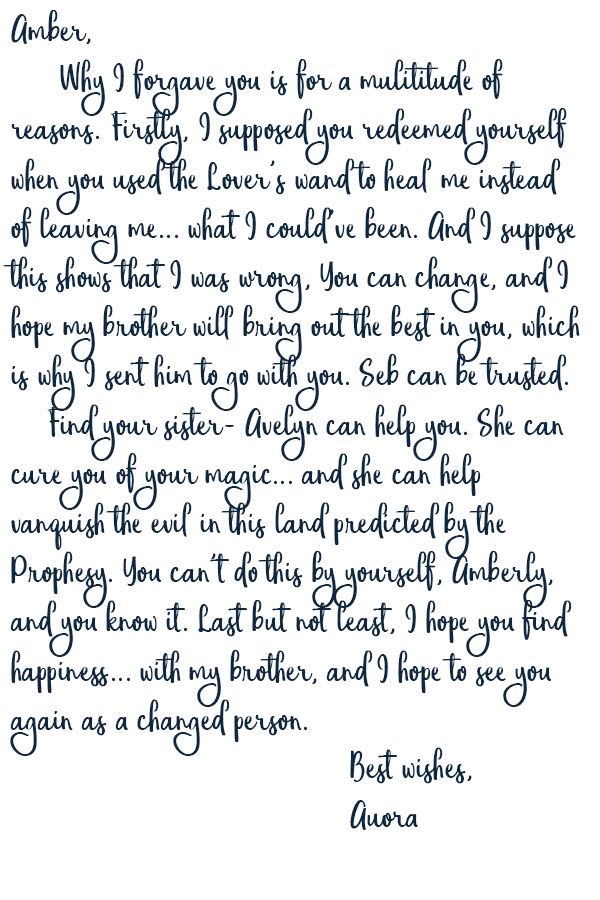 Amber,
Why I forgave you is for a mulititude of
reasons. Firstly, I supposed you redeemed yourself
when you used the Lover's wand to heal me instead
of leaving me... what I could've been. And I suppose
this shows that I was wrong, You can change, and I
hope my brother will bring out the best in you, which
is why I sent him to go with you. Seb can be trusted.
Find your sister- Avelyn can help you. She can
cure you of your magic... and she can help
vanquish the evil in this land predicted by the
Prophesy. You can't do this by yourself, Amberly,
and you know it. Last but not least, I hope you find
happiness... with my brother, and I hope to see you
again as a changed person.
Best wishes,
Auora